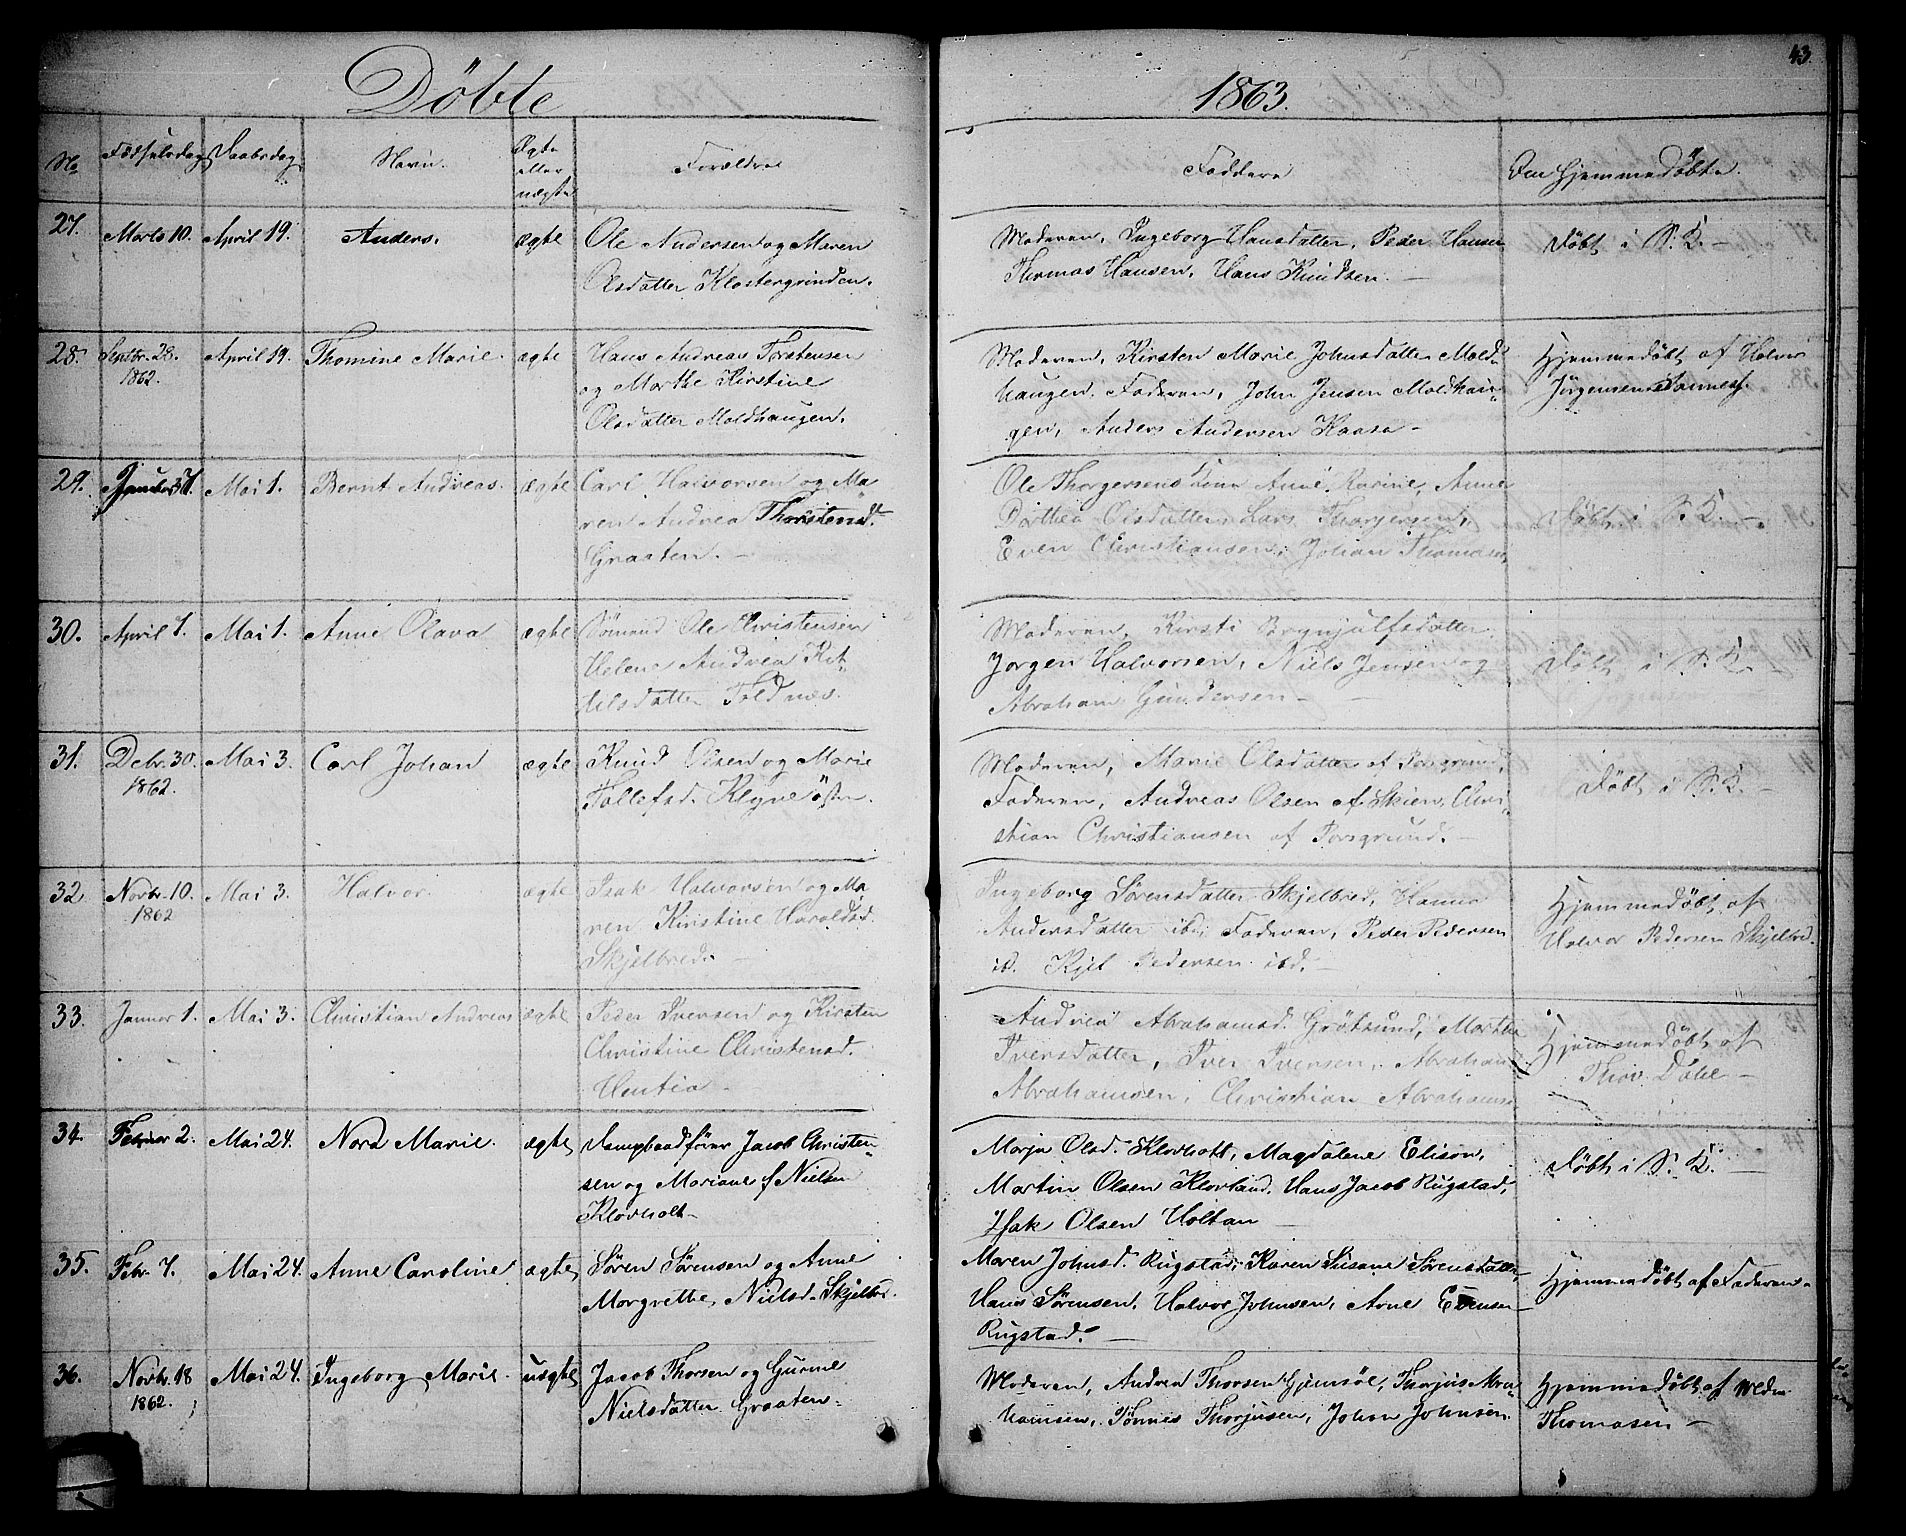 43.
Döbte
1863.
No
Fødselsdag
Daabsdag
Navn.
Ægte
eller
uægte
Forældre
Faddere
Om Hjemmedöbte.
27.
Marts 10.
April 19.
Anders.
ægte
Ole Andersen og Maren
Olsdatter Klostergrinden.
Moderen, Ingeborg Hansdatter, Peder Hansen
Thomas Hansen, Hans Knudsen. —
Döbt i S. K. —
28.
Septbr. 28.
1862.
April 19.
Thomine Marie.
ægte
Hans Andreas Torstensen
og Marthe Kirstine
Olsdatter Moldhaugen.
Moderen, Kirsten Marie Johnsdatter Mold-
haugen. Faderen, John Jensen Moldhau-
gen, Anders Andersen Kaasa —
Hjemmedöbt af Halvor
Jörgensen
29.
Mai 1.
Bernt Andreas.
ægte
Carl Halvorsen og Ma
ren Andrea Thorstensd.
Graaten. —
Ole Thorgersens Kone Anne Karine, Anne
Dorthea Olsdatter Lars Thorjersen,
Even Christiansen, Johan Thomasen,
Döbt i S. K. —
30.
April 1.
Mai 1.
Anne Olava
ægte
Sömand Ole Christensen
Helene Andrea Ket-
tilsdatter Foldnæs.
Moderen, Kirsti Brynjulfsdatter
Jorgen Halvorsen, Niels Jensen og
Abraham Gundersen —
Döbt i S. K.
31.
Debr. 30.
1862.
Mai 3.
Carl Johan
ægte
Knud Olsen og Marie
Tollefsd. Klyve östre.
Moderen, Marie Olsdatter af Porsgrund,
Faderen, Andreas Olsen af Skien, Chri-
stian Christiansen af Porsgrund. —
Döbt i S. K. —
32.
Novbr. 10.
1862
Mai 3.
Halvor.
ægte
Isak Halvorsen og Ma
ren Kirstine Haraldsd.
Skjelbred. —
Ingeborg Sörensdatter Skjelbred, Hanna
Andersdatter ibd, Faderen, Peder Pedersen
ib. Kjel Pedersen ibd. —
Hjemmedöbt af
Halvor Pedersen Skjelbred.
33.
Januar 1.
Mai 3.
Christian Andreas
ægte
Peder Iversen og Kirsten
Christine Christensd.
Andrea Abrahamsd. Grötsund, Marthe
Iversdatter, Iver Iversen, Abraham
Abrahamsen, Christian Abrahamsen
Hjemmedöbt af
Thov. Dahl —
34.
Februar 2.
Mai 24.
Nora Marie.
ægte
Dampbaadförer Jacob Christen-
sen og Mariane f Nielsen
Klovholt —
Marja Olsd. Klovholt, Magdalene Elison,
Martin Olsen Klovland, Hans Jacob Rugstad,
Isak Olsen Holtan —
Döbt i S. K. —
35.
Febr. 7.
Mai 24.
Anne Caroline
ægte
Sören Sörensen og Anne
Margrethe, Nielsd. Skjelbred.
Maren Johnsd. Rugstad, Karen Susane Sörensdatter,
Hans Sörensen, Halvor Johnsen, Arne Evensen
Rugstad. —
Hjemmedöbt af Faderen.
36.
Novbr. 18
1862.
Mai 24.
Ingeborg Marie.
uægte
Jacob Thorsen og Gurine
Nielsdatter Graaten.
Moderen, Andrea Thorsen Gjemsöe, Thorjus Abra-
hamsen, Tönnes Thorjusen, Johan Johnsen.
Hjemmedöbt af
Thomasen —